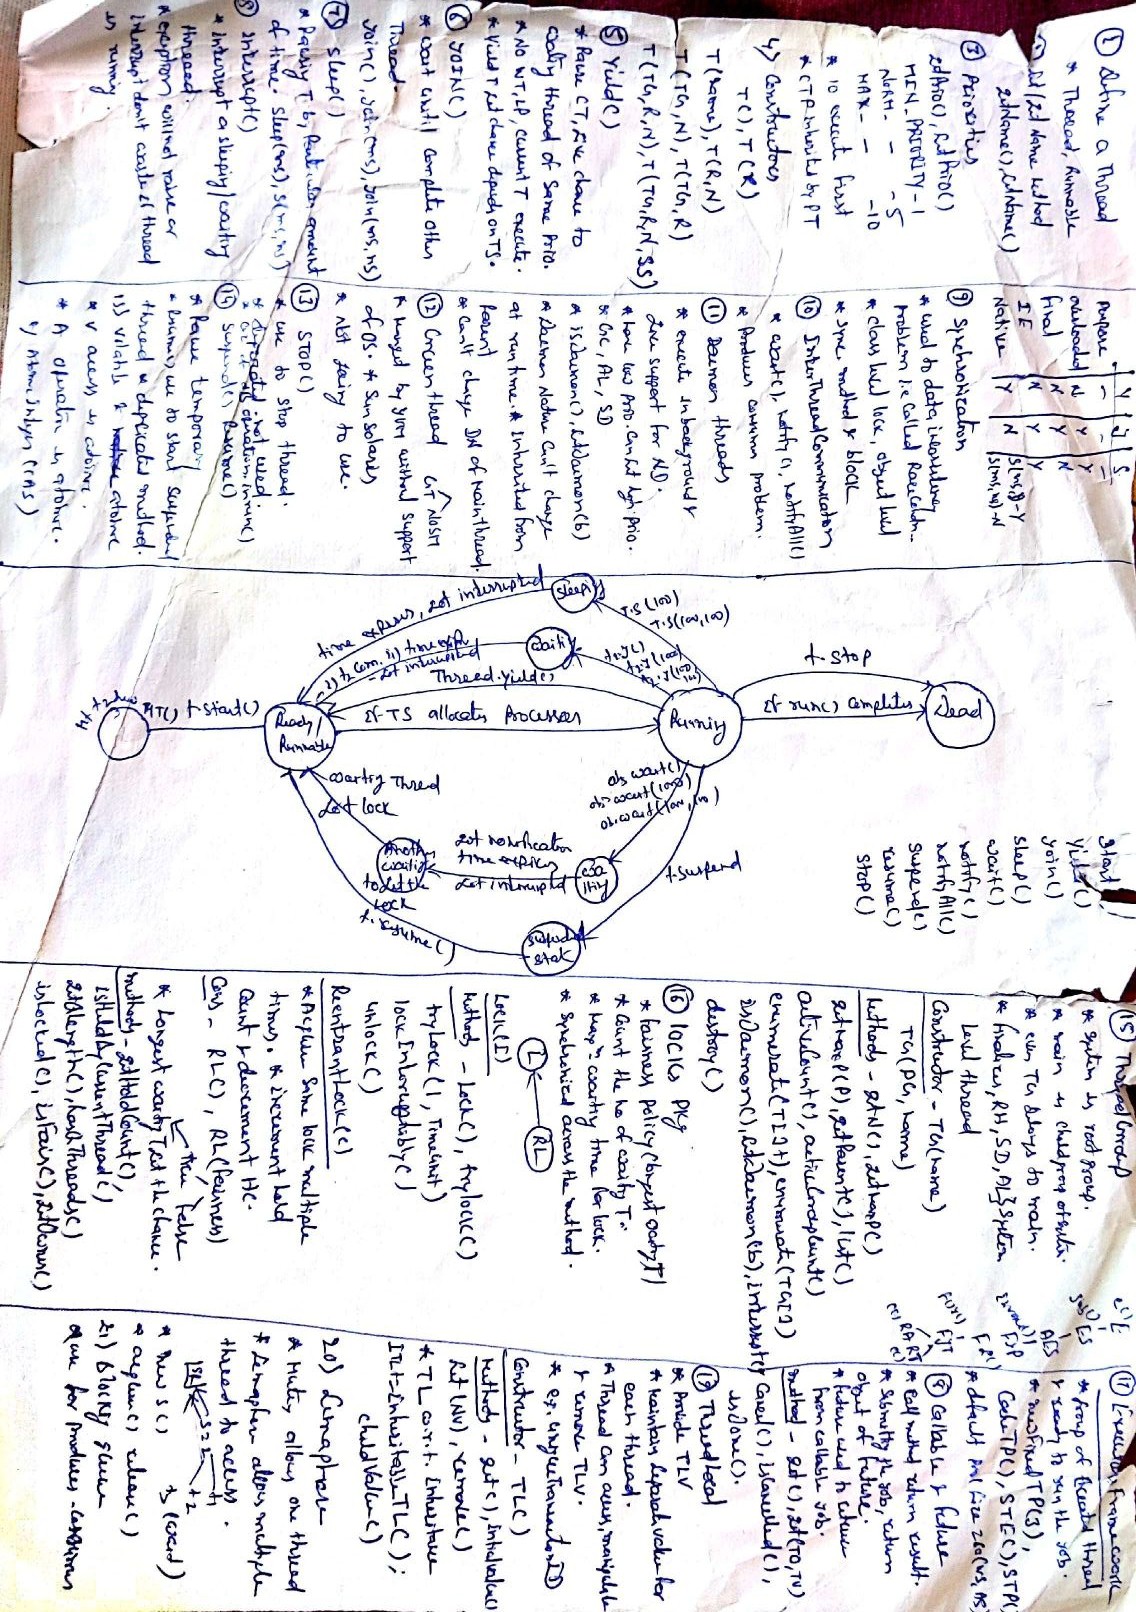 1) Define a Thread
* Thread, Runnable
2) Set/Get Name Method
getName(), setName()
3) Priorities
getPrio(), setPrio()
MIN_PRIORITY-1
NORM- - -5
MAX- - -10
* 10 execute first
* CTP inherited by PT
4) Constructors
T(), T(R)
T(name), T(R,N)
T(TG,N), T(TG,R)
T(TG,R,N), T(TG,R,N,SS)
5) Yield()
* Pause CT, give chance to
waiting thread of same Prio.
* No WT, LP, current T execute.
* Yield T get chance depends on TS.
6) JOIN()
* wait until complete other
Thread.
join(), join(ms), join(ms,ns)
7) sleep()
* Pausing T by Particular amount
of time. sleep(ms), s(ms,ns)
8) Interrupt()
* Interrupt a sleeping/waiting
thread.
* exception will not raise or
interrupt don't waste if thread
is running.
Y J S
Purpose - - -
overloaded N Y Y
final N Y N
IE N Y Y
Native Y N S(ms)-Y
S(ms,ns)-N
9) Synchronization
* used to data inconsistency
Problem i.e called Race Condn..
* class level lock, object level
* sync. method & block
10) InterThreadCommunication
* wait(), notify(), notifyAll()
* Producer consumer problem.
11) Daemon threads
* execute in background &
give support for ND.
* have low prio. can set high prio.
* GC, AL, SD
* isDaemon(), setDaemon(b)
* Daemon Nature Can't change
at run time. * Inherited from
Parent
* Can't change DN of Main thread.
12) Green thread GT NOSM
* Manged by JVM without support
of OS. * Sun solaris
* Not going to use.
13) STOP()
* use to stop thread.
* not used.
14) Suspend() Resume()
* Pause temporary
* Resume() use to start suspended
thread * duplicated method.
15) volatile & atomic
* V access is atomic.
* A operation is atomic.
eg AtomicInteger (CAS)
Start()
Yield()
join()
sleep()
wait()
notify()
notifyAll()
suspend()
resume()
stop()
Dead
t.stop
If run() completes
Running
T.S(100)
T.S(100,100)
t.suspend
obj.wait()
obj.wait(1000)
sleep
waiting
waiting
suspended
state
time expires, got interrupted
Thread.yield()
If TS allocates processor
Got notification
time expires
Got interrupted
Another
waiting
to get the
lock
waiting Thread
Got lock
t.resume()
Ready/
Runnable
t.start()
15) ThreadGroup
* System is root group.
* main is child group of system.
* even TG belongs to main.
* finalizer, RH, SD, AL} System
Level thread
Constructor - TG(name)
TG(PG, name)
Methods - getN(), getmaxP()
setmaxP(P), getParent(), list()
activeCount(), activeGroupCount()
enumerate(T[]t), enumerate(TG[])
isDaemon(), setDaemon(b), interrupt()
destroy()
16) locks Pkg
* fairness policy (longest waiting T)
* Count the no of waiting T.
* Max waiting time for lock.
* Synchronized across the method.
L RL
Lock(I)
Methods - Lock(), trylock()
tryLock(1, TimeUnit)
lockInterruptibly()
unlock()
ReentrantLock(C)
* Acquire Same lock multiple
times. * increment hold
Count & decrement HC.
Cons - RL(), RL(fairness)
True False
* Longest waiting T get the chance.
methods - getHoldCount(),
isHeldByCurrentThread()
getQlength(), hasQThreads()
isLocked(), isFair(), getOwner()
E
ES
AES
FJP
FJT
RA RT
17) Executor Framework
* Group of Executed thread
& ready to run the job.
* newFixedTP(3),
CacheTP(), STE(), STP()
18) Callable & Future
* Call method return result.
* Submitting the job, return
object of future.
* Future used to retrieve
from callable job.
method - get(), get(TO, TU)
Cancel(), isCancelled(),
isDone().
19) ThreadLocal
* Provide TLV
* Maintain Separate value for
each thread.
* Thread can access, manipulate
& remove TLV.
* eg. uniqueTransactionID
Constructor - TL()
Methods - get(), initialvalue()
Set(NV), remove()
* TL w.r.t. Inheritance
ITL t = InheritableTLC();
childValue()
20) Semaphore
* Mutex allows one thread
* Semaphore allows multiple
thread to access.
S=2 t1
t2
t3 (wait)
* new S()
* acquire() release()
21) Blocking queue
* use for producer-consumer